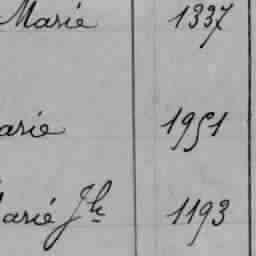 Marie 1337
arie 1951
arié Jh 1193